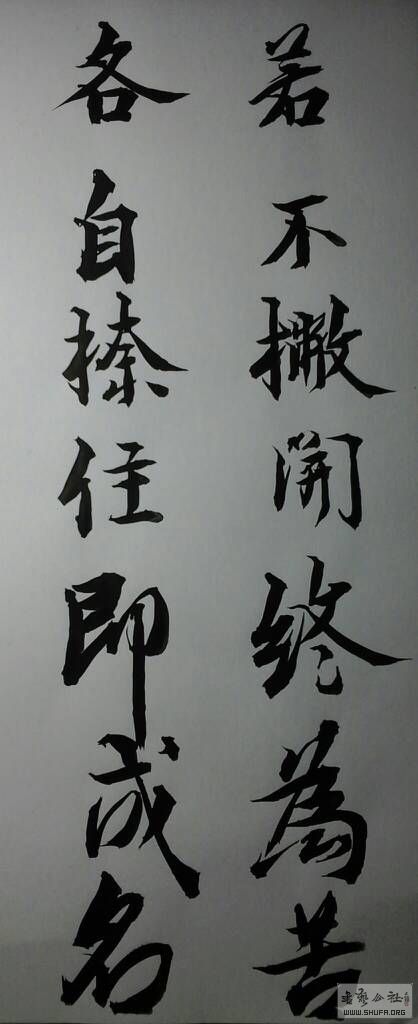 若不撇開終為苦
各自捺住即成名
書藝公社
WWW.SHUFA.ORG